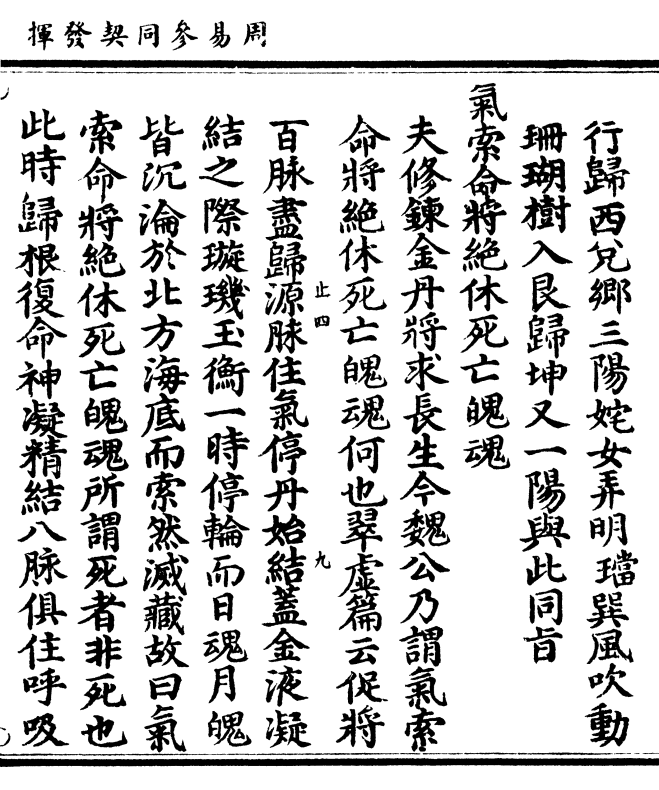 周易參同契發揮
行歸西兌鄉三陽姹女弄明璫巽風吹動
珊瑚樹入艮歸坤又一陽與此同旨
氣索命將絕休死亡魄魂
夫修鍊金丹將求長生今魏公乃謂氣索
命將絕休死亡魄魂何也翠虛篇云促將
百脉盡歸源脉住氣停丹始結蓋金液凝
止四
九
結之際璇璣玉衡一時停輪而日魂月魄
皆沉淪於北方海底而索然滅藏故曰氣
索命將絕休死亡魄魂所謂死者非死也
此時歸根復命神凝精結八脉俱住呼吸